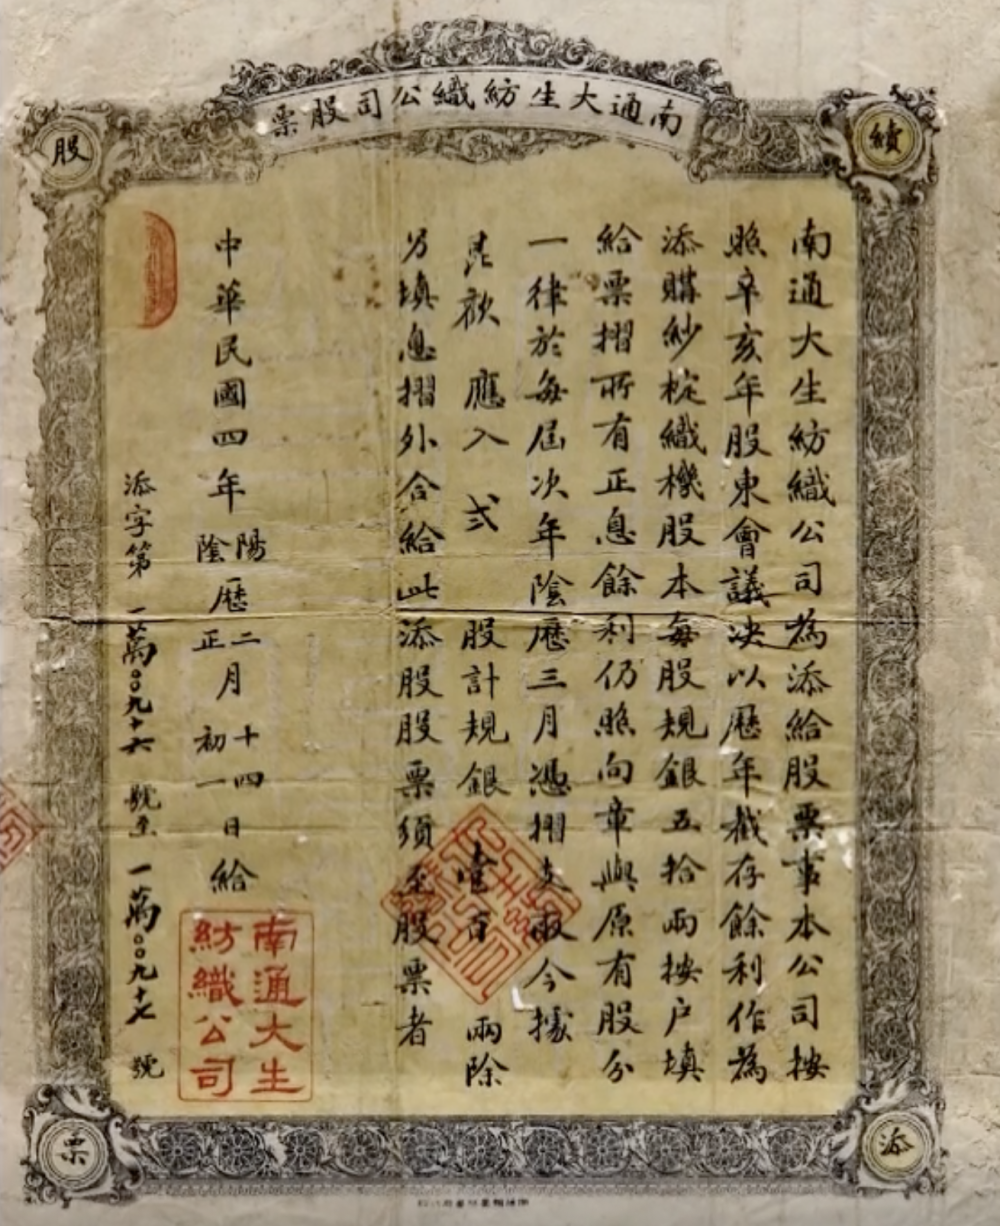 南通大生紡織公司股票
續
添
股
票
南通大生紡織公司為添給股票事本公司按
照辛亥年股東會議决以歷年截存餘利作為
添購紗錠織機股本每股規銀五拾兩按户填
給票摺所有正息餘利仍照向章與原有股分
一律於每屆次年陰歷三月憑摺支取今據
應入弍股計規銀壹百兩除
另填息摺外合給此添股股票須至股票者
中華民國四年陽陰歷二正月十四初一日給
添字第一萬00九十六號至一萬00九十七號
南通大生
紡織公司